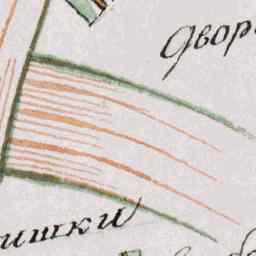 двор
ишки